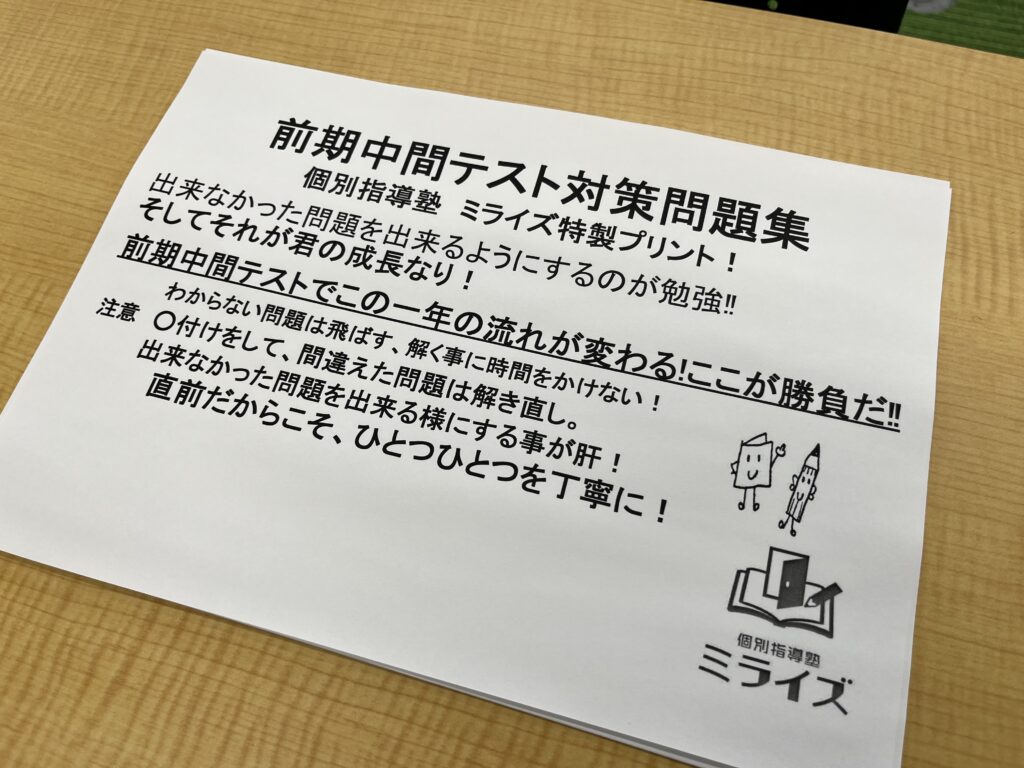 前期中間テスト対策問題集
個別指導塾　ミライズ特製プリント！
出来なかった問題を出来るようにするのが勉強‼
そしてそれが君の成長なり！
前期中間テストでこの一年の流れが変わる!ここが勝負だ‼
わからない問題は飛ばす、解く事に時間をかけない！
注意　〇付けをして、間違えた問題は解き直し。
出来なかった問題を出来る様にする事が肝！
直前だからこそ、ひとつひとつを丁寧に！
個別指導塾
ミライズ